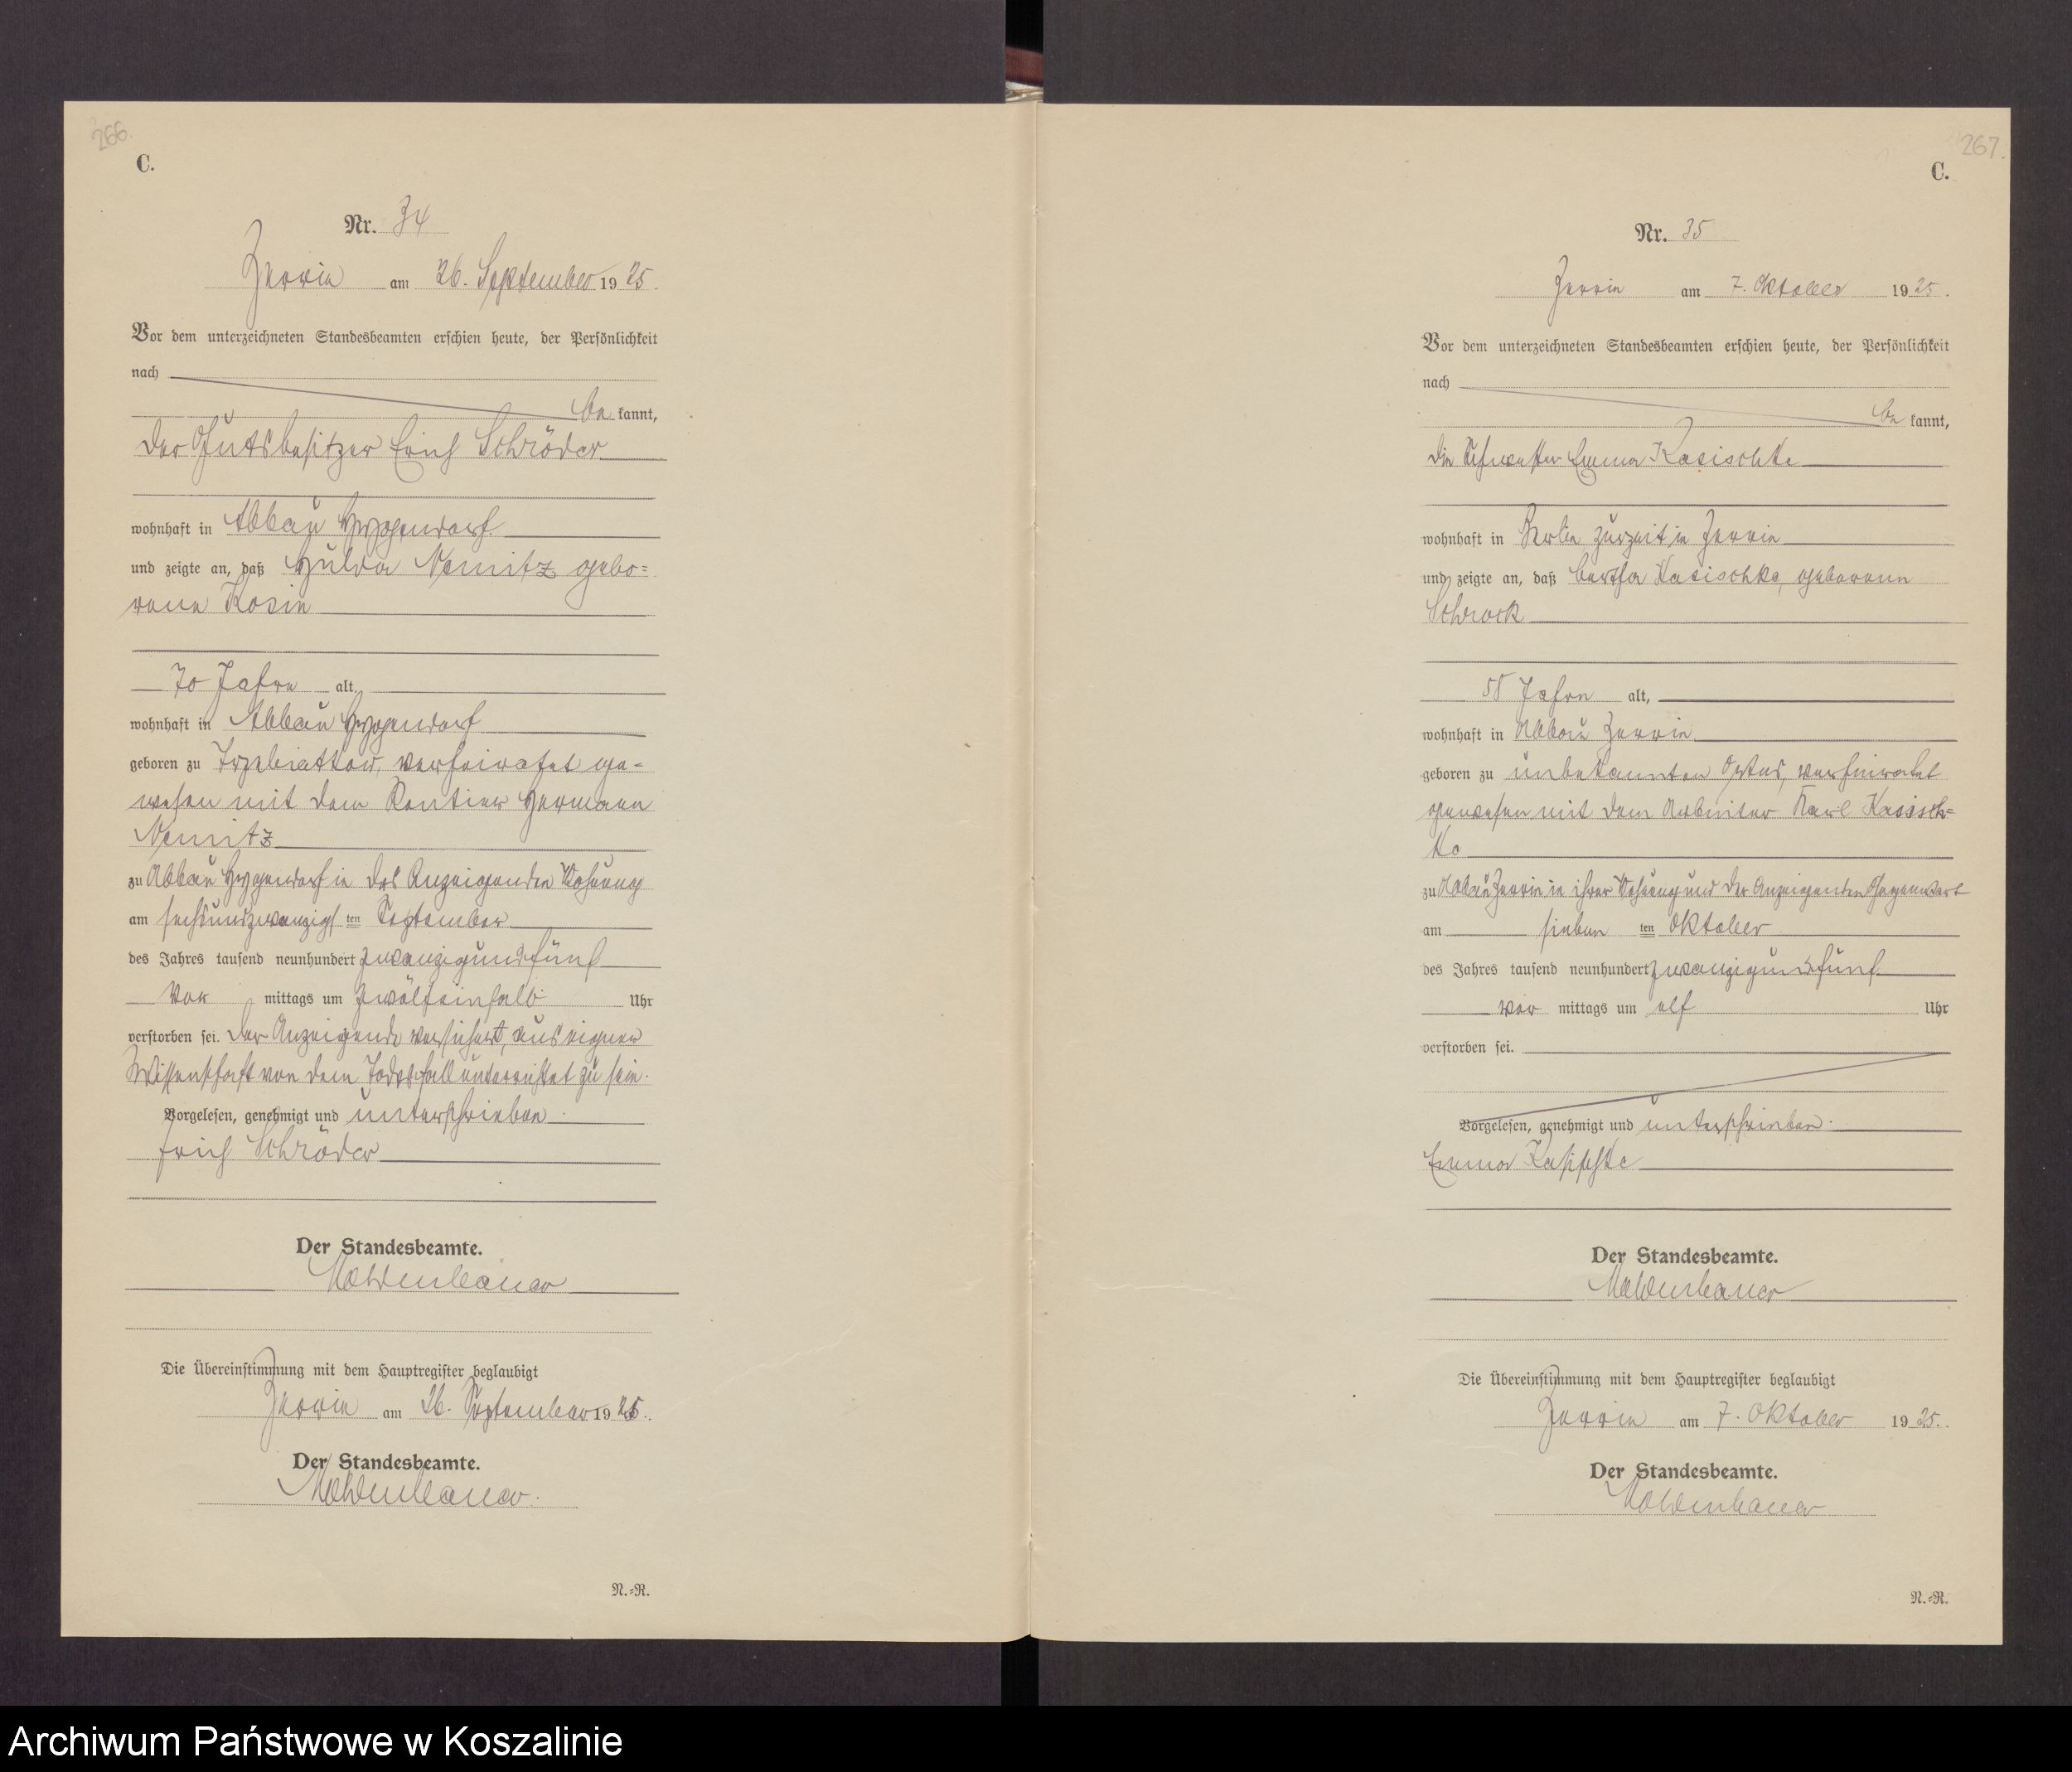 266.
C.
Nr. 34
Zerrin am 26. September 1925.
Vor dem unterzeichneten Standesbeamten erschien heute, der Persönlichkeit
nach
be kannt,
der Gutsbesitzer Erich Schröder
wohnhaft in Abbau
und zeigte an, daß Hulda Nemitz gebo=
rene Kosin
70 Jahre alt,
wohnhaft in Abbau
geboren zu Trzebiatkow, verheiratet ge-
wesen mit dem Rentier Hermann
Nemitz
zu Abbau in des Anzeigenden Wohnung
am sechsundzwanzigs ten September
des Jahres tausend neunhundert zwanzigundfünf
Vor mittags um zwölfeinhalb Uhr
verstorben sei. Der Anzeigende versichert, aus eigner
Wissenschaft von dem Todesfall unterrichtet zu sein.
Vorgelesen, genehmigt und unterschrieben.
Erich Schröder
Der Standesbeamte.
Die Übereinstimmung mit dem Hauptregister beglaubigt
Zerrin am 26. September 1925.
Der Standesbeamte.
N.=R.
267.
C.
Nr. 35
Zerrin am 7. Oktober 1925.
Vor dem unterzeichneten Standesbeamten erschien heute, der Persönlichkeit
nach
be kannt,
die Schwester Emma Kasischke
wohnhaft in Berlin zurzeit in Zerrin
und zeigte an, daß Bertha Kasischke, geborenen
Schrock
58 Jahre alt,
wohnhaft in Abbau Zerrin
geboren zu unbekannten Ortes, verheiratet
gewesen mit dem Arbeiter Karl Kasisch=
ke
zu Abbau Zerrin in ihrer Wohnung und der Anzeigenden Gegenwart
am sieben ten Oktober
des Jahres tausend neunhundert zwanzigundfünf
vor mittags um elf Uhr
verstorben sei.
Vorgelesen, genehmigt und unterschrieben.
Emma Kasischke
Der Standesbeamte.
Die Übereinstimmung mit dem Hauptregister beglaubigt
Zerrin am 7. Oktober 1925.
Der Standesbeamte.
N.=R.
Archiwum Państwowe w Koszalinie